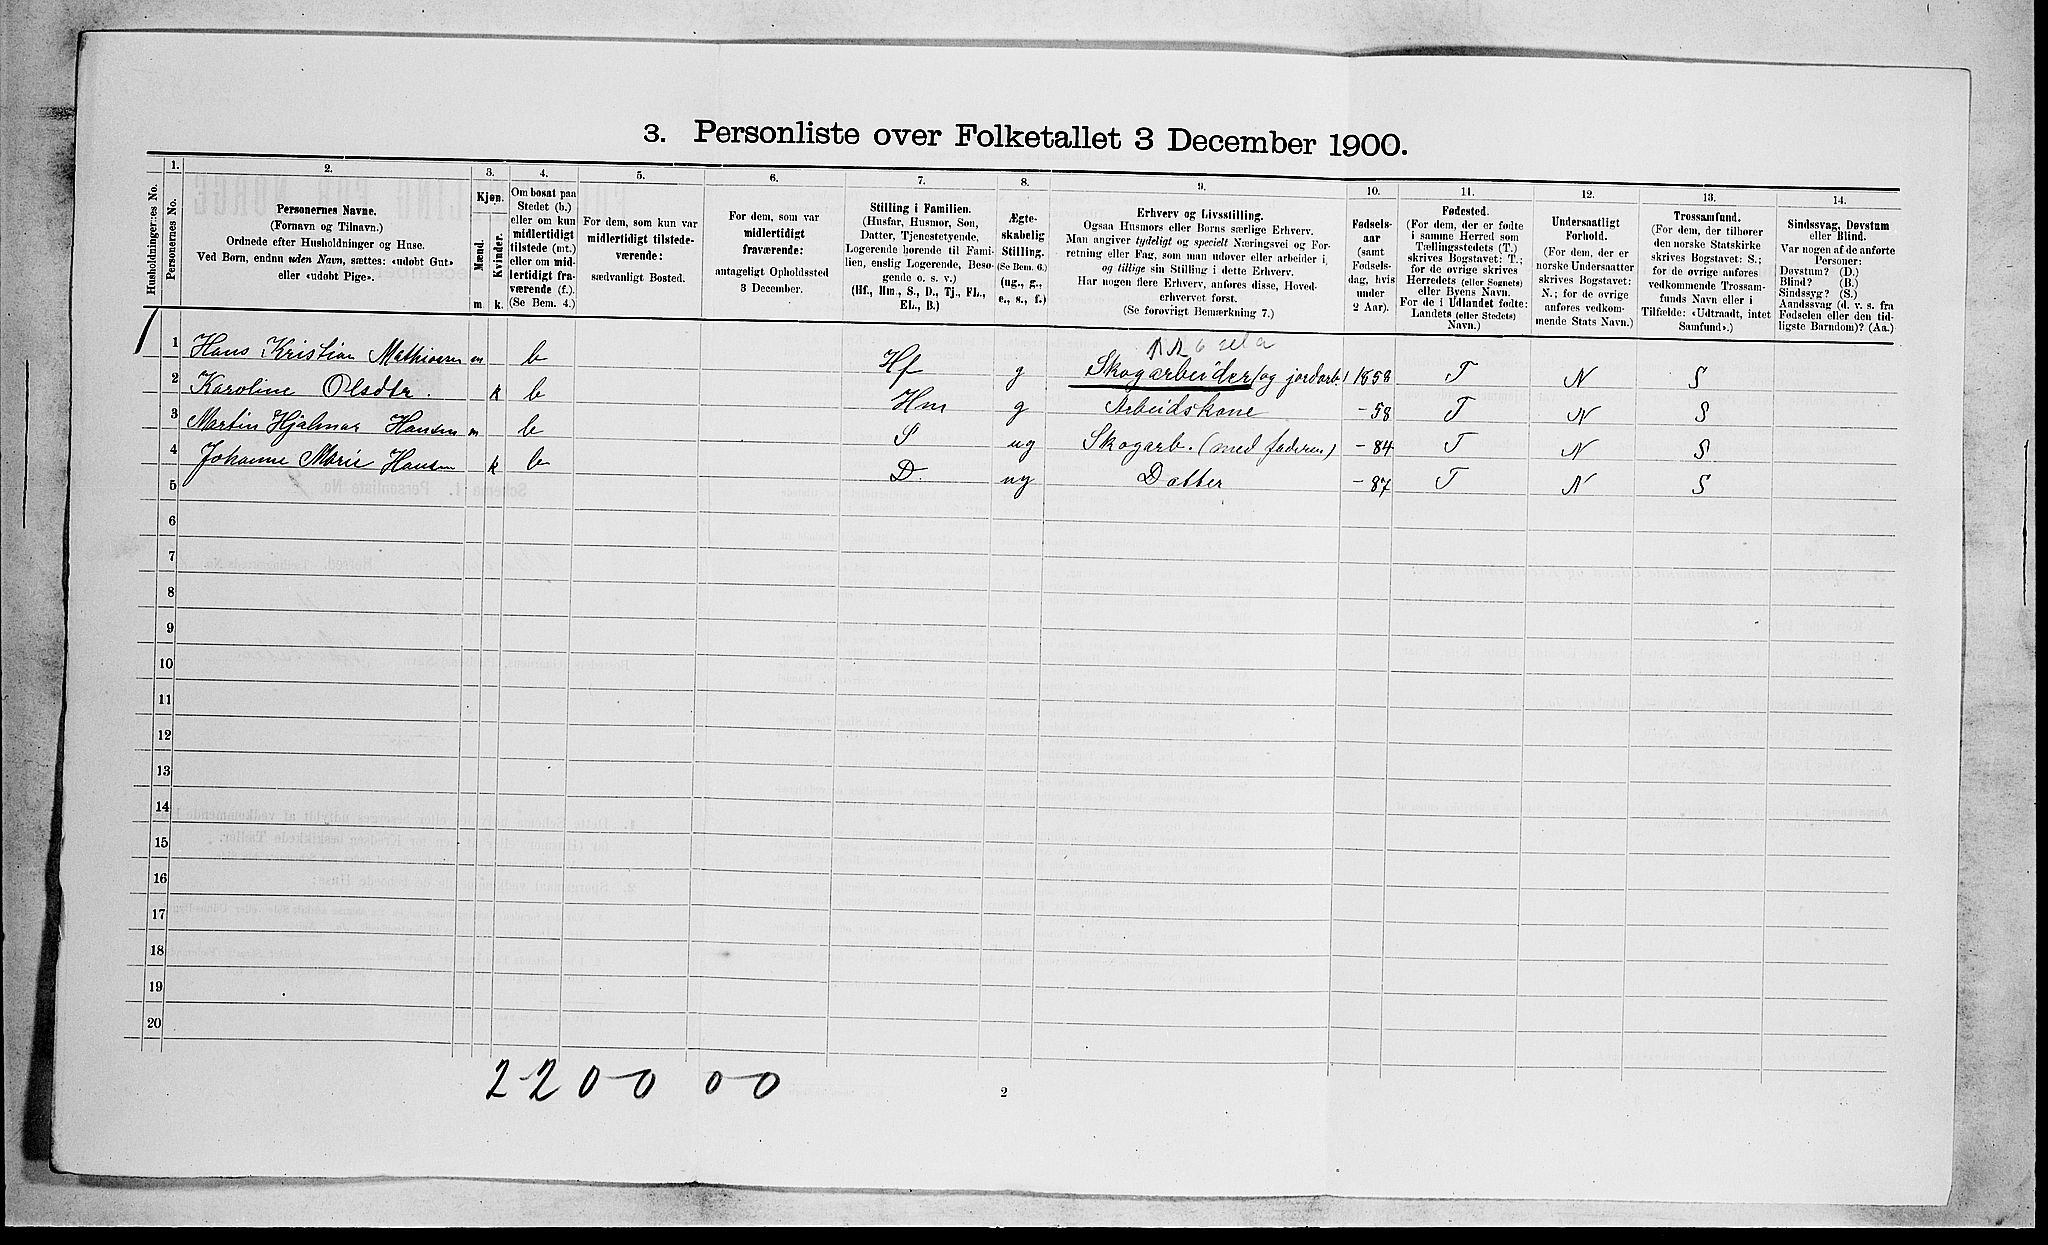 3. Personliste over Folketallet 3 December 1900.
Husholdningernes No.
1.
Personernes No.
2.
Personernes Navne.
(Fornavn og Tilnavn.)
Ordnede efter Husholdninger og Huse.
Ved Børn, endnu uden Navn, sættes: «udøbt Gut»
eller «udøbt Pige».
3.
Kjøn.
Mænd.
Kvinder.
m. k.
4.
Om bosat paa
Stedet (b.)
eller om kun
midlertidigt
tilstede (mt.)
eller om mid-
lertidigt fra-
værende (f.).
(Se Bem. 4.)
5.
For dem, som kun var
midlertidigt tilstede-
værende:
sædvanligt Bosted.
6.
For dem, som var
midlertidigt
fraværende:
antageligt Opholdssted
3 December.
7.
Stilling i Familien.
(Husfar, Husmor, Søn,
Datter, Tjenestetyende,
Logerende hørende til Fami-
lien, enslig Logerende, Besø-
gende o. s. v.)
(Hf., Hm., S., D., Tj., FL.,
EL., B.)
8.
Ægte-
skabelig
Stilling.
(Se Bem. 6.)
(ug., g.,
e., s., f.)
9.
Erhverv og Livsstilling.
Ogsaa Husmors eller Børns særlige Erhverv.
Man angiver tydeligt og specielt Næringsvei og For-
retning eller Fag, som man udøver eller arbeider i,
og tillige sin Stilling i dette Erhverv.
Har nogen flere Erhverv, anføres disse, Hoved-
erhvervet først.
(Se forøvrigt Bemærkning 7.)
10.
Fødsels-
aar
(samt
Fødsels-
dag, hvis
under
2 Aar).
11.
Fødested.
(For dem, der er fødte
i samme Herred som
Tællingsstedets (T.)
skrives Bogstavet: T.;
for de øvrige skrives
Herredets (eller Sognets)
eller Byens Navn.
For de i Udlandet fødte:
Landets (eller Stedets)
Navn.)
12.
Undersaatligt
Forhold.
(For dem, der er
norske Undersaatter
skrives Bogstavet:
N.; for de øvrige
anføres vedkom-
mende Stats Navn.)
13.
Trossamfund.
(For dem, der tilhører
den norske Statskirke
skrives Bogstavet: S.;
for de øvrige anføres
vedkommende Trossam-
funds Navn eller i
Tilfælde: «Udtraadt, intet
Samfund».)
14.
Sindssvag, Døvstum
eller Blind.
Var nogen af de anførte
Personer:
Døvstum? (D.)
Blind? (B.)
Sindssyg? (S.)
Aandssvag (d. v. s. fra
Fødselen eller den tid-
ligste Barndom)? (Aa.)
1 1 Hans Kristian Mathiesen m b Hf g Skogarbeider (og jordarb.) 1858 T N S
2 Karoline Olsdtr. k b Hm g Arbeidskone -58 T N S
3 Martin Hjalmar Hansen m b S ug Skogarb. (med faderen) -84 T N S
4 Johanne Marie Hansen k b D. ug Datter -87 T N S
5
6
7
8
9
10
11
12
13
14
15
16
17
18
19
20
2-2 0-0 0-0
2